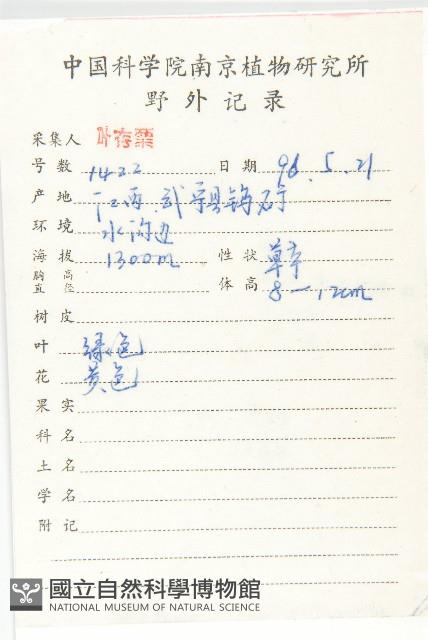 中国科学院南京植物研究所
野外记录
采集人 叶存粟
号数 1422 日期 96.5.21
产地 江西 武宁县
环境 水沟边
海拔 1300m 性状 草本
胸高直径 体高 8—12cm
树皮
叶 绿色
花 黄色
果实
科名
土名
学名
附记
國立自然科學博物館
NATIONAL MUSEUM OF NATURAL SCIENCE